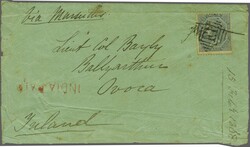 Via Marseilles
Lieut Col Bayly
Ballyarthur
Ovoca
INDIA PAID
Ireland